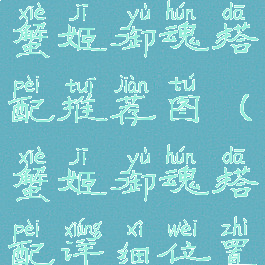 xiè jī yù hún dā
蟹姬御魂搭
pèi tuī jiàn tú
配推荐图（
xiè jī yù hún dā
蟹姬御魂搭
pèi xiáng xì wèi zhì
配详细位置